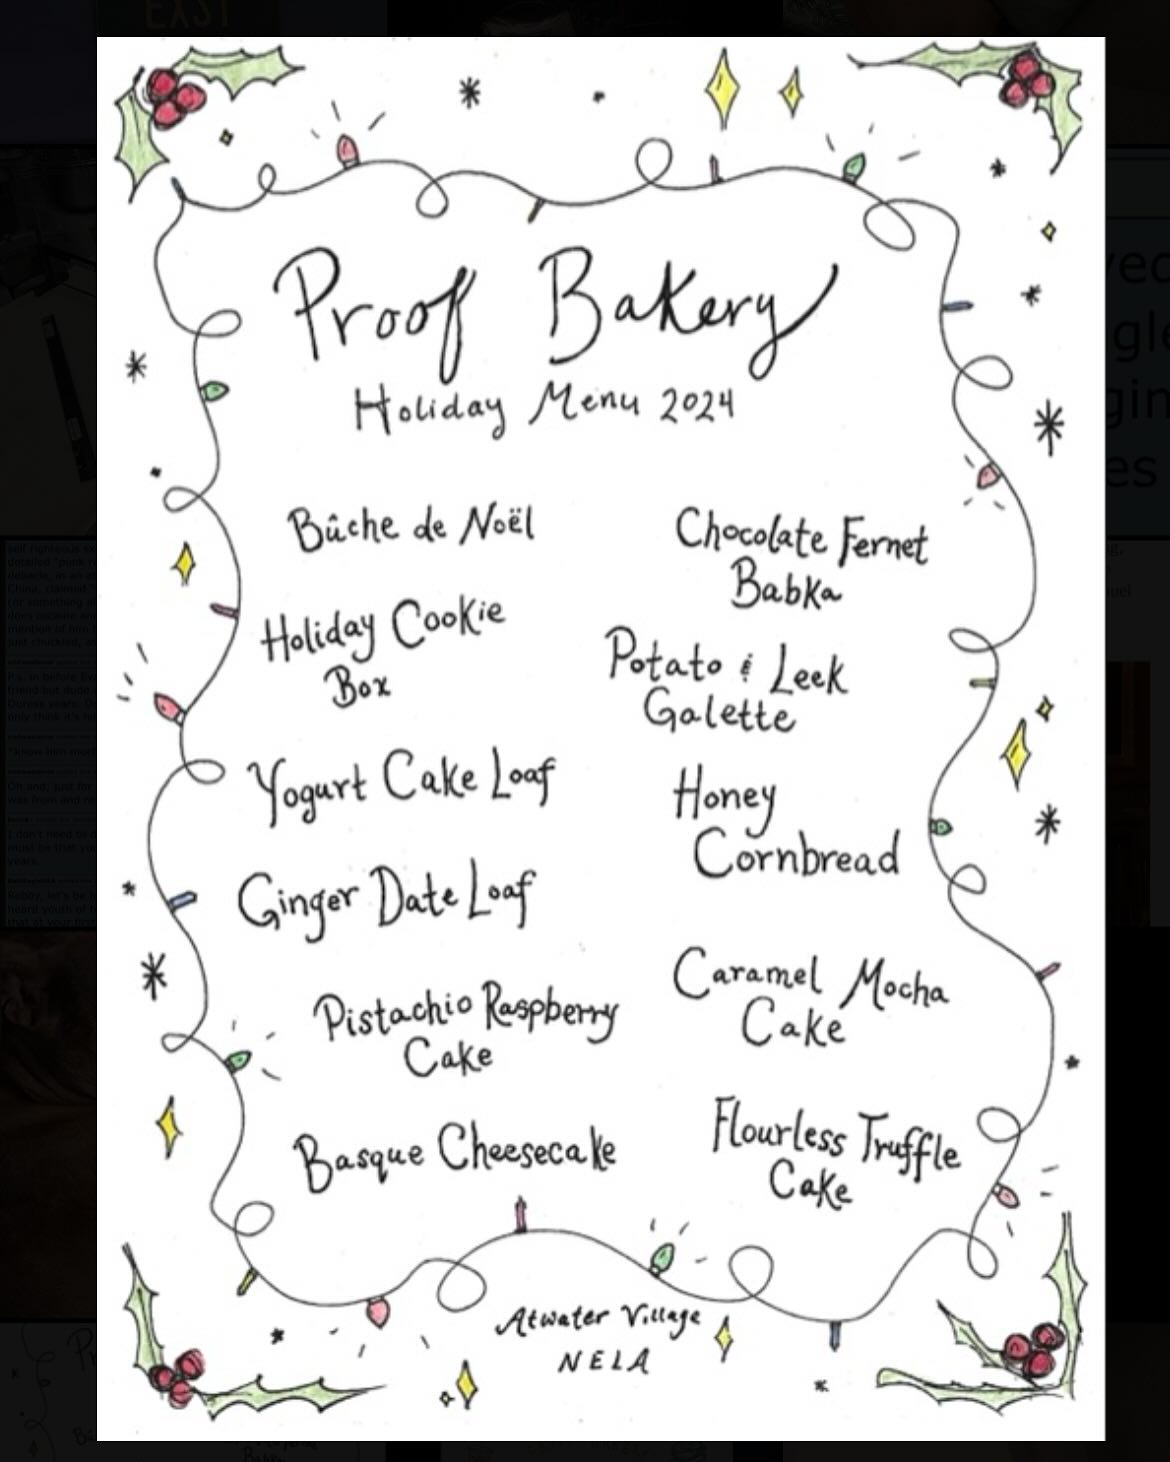 EAST
Proof Bakery
Holiday Menu 2024
Bûche de Noël
Holiday Cookie
Box
Yogurt Cake Loaf
Ginger Date Loaf
Pistachio Raspberry
Cake
Basque Cheesecake
Chocolate Fernet
Babka
Potato & Leek
Galette
Honey
Cornbread
Caramel Mocha
Cake
Flourless Truffle
Cake
Atwater Village
NELA